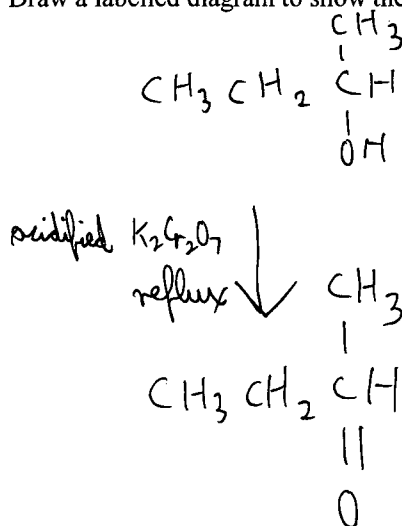 Draw a labelled diagram to show the
CH3
|
CH3 CH2 CH
|
OH
acidified K2Cr2O7
reflux
CH3
|
CH3 CH2 CH
||
O